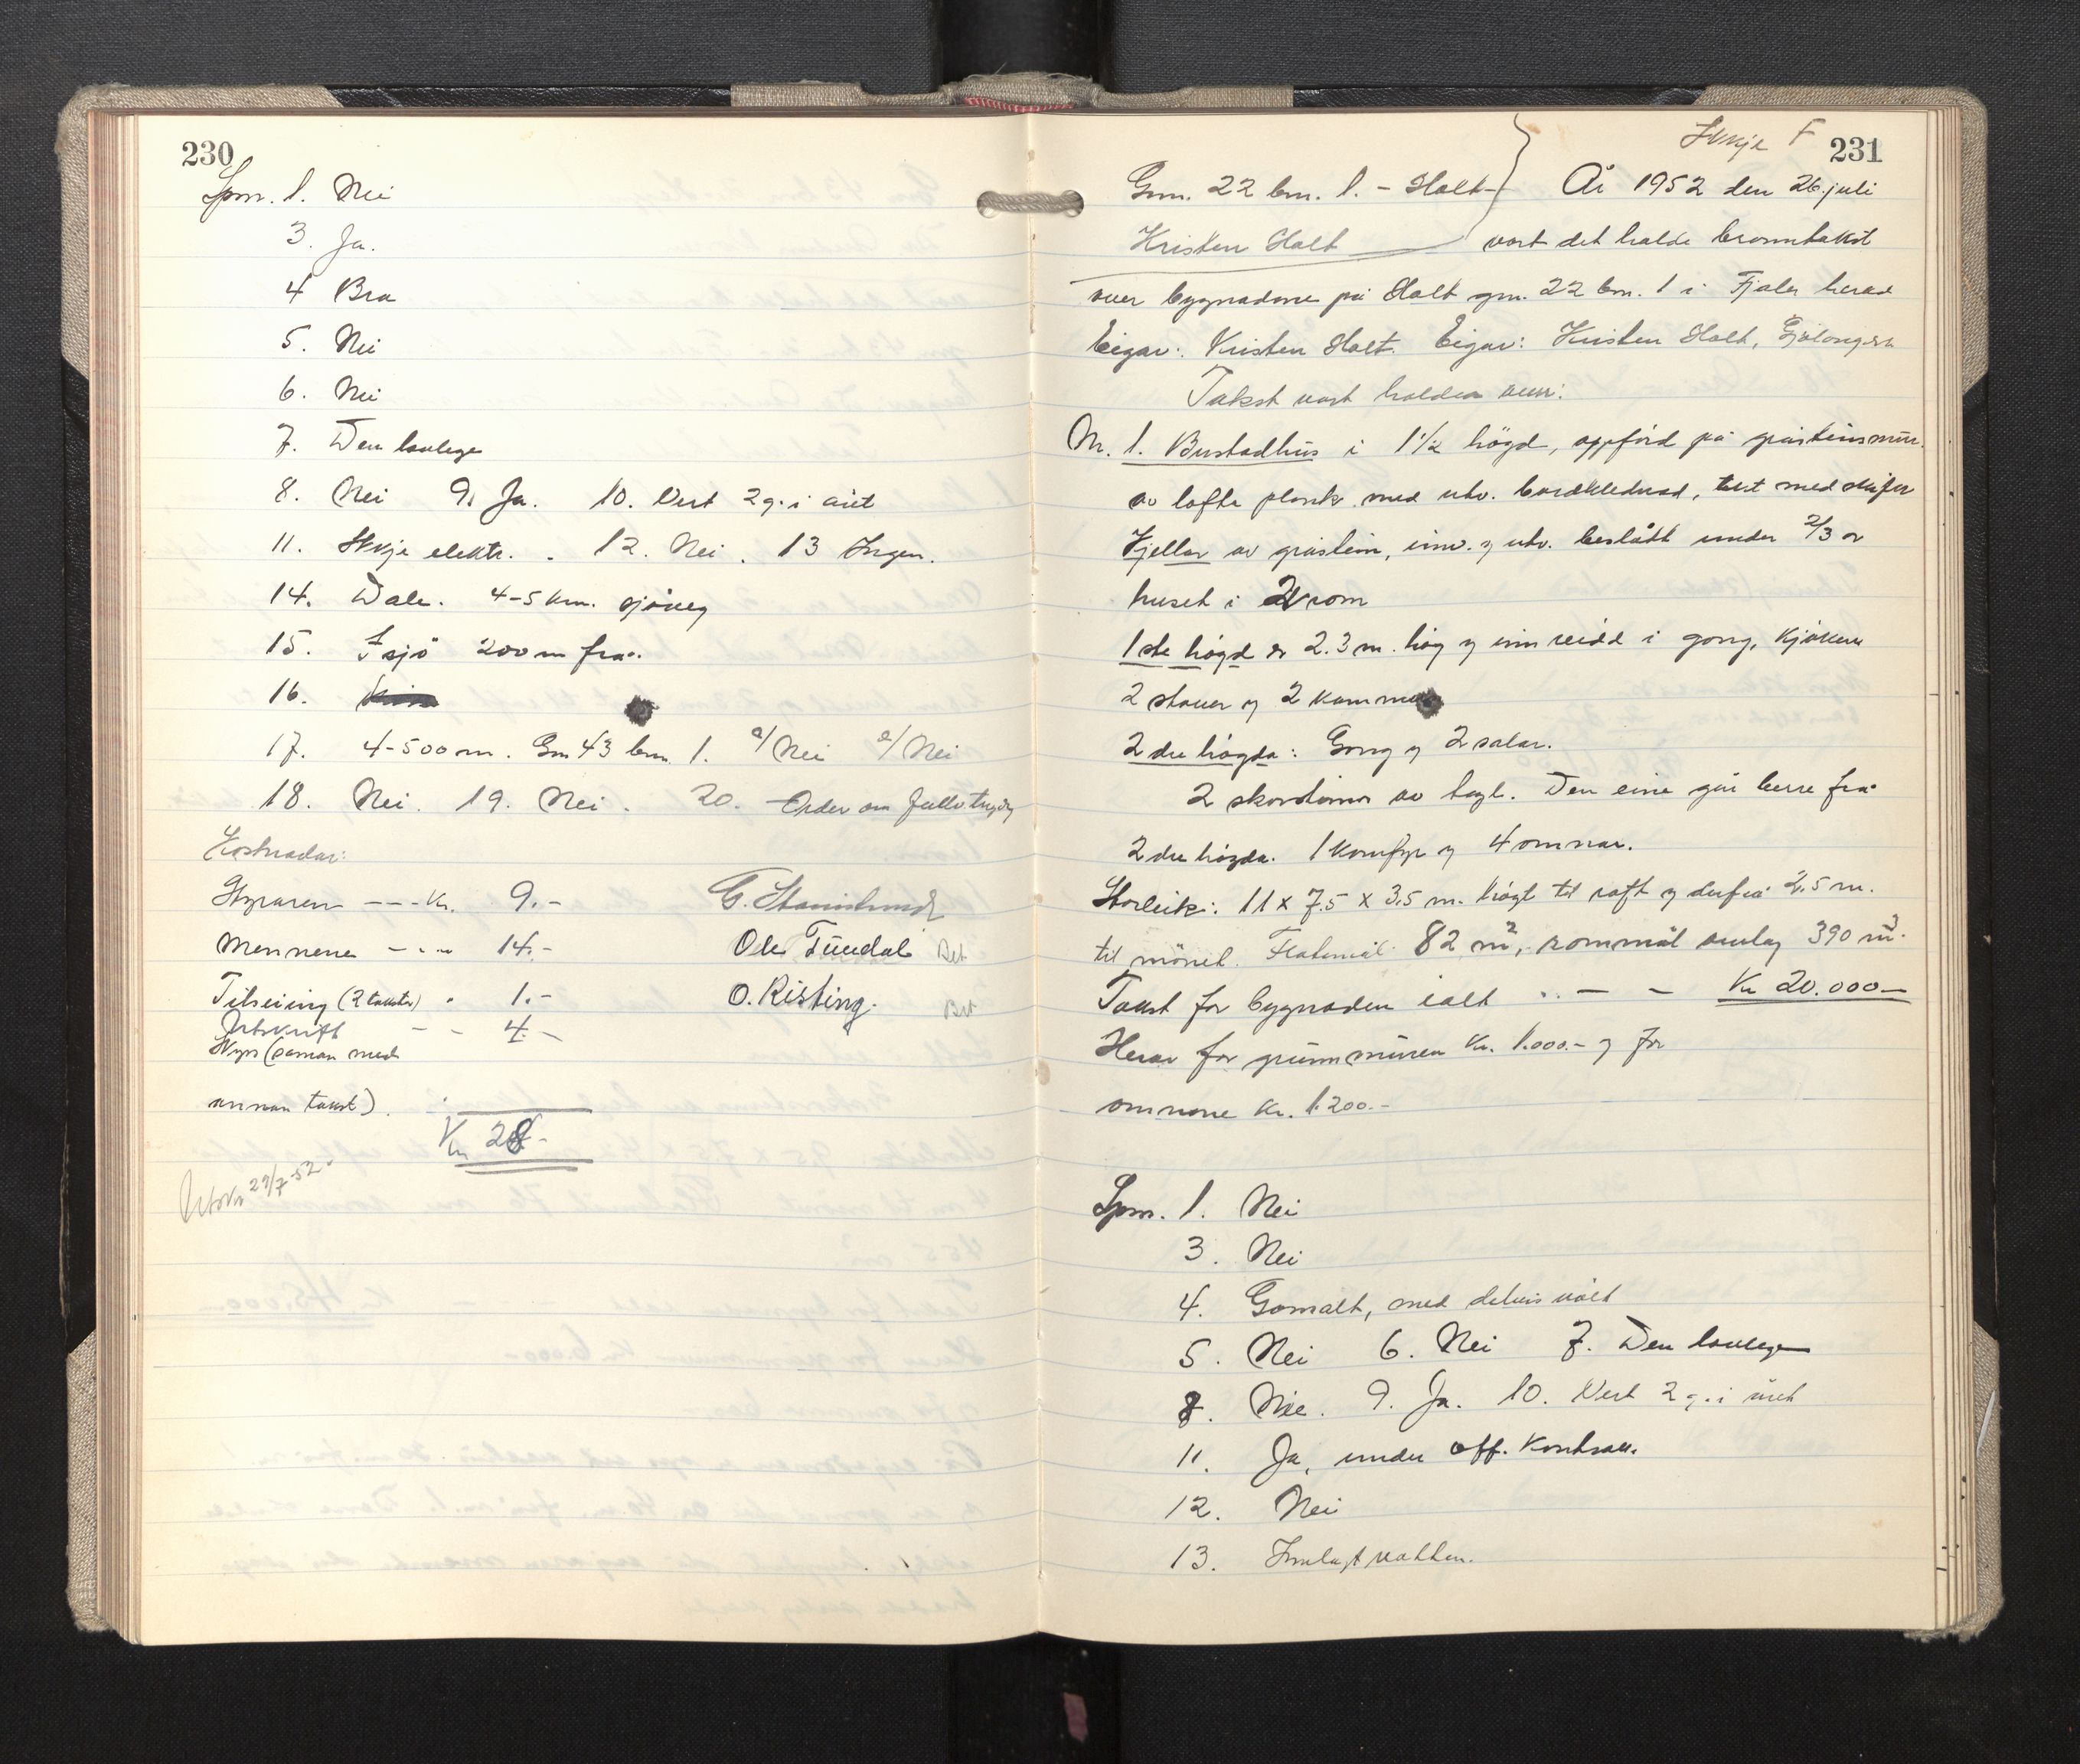 230
Spm. 1. Nei
3. Ja.
4 Bra
5. Nei
6. Nei
7. Den lovlege
8. Nei 9. Ja. 10. Vert 2 g. i året
11. Ikkje elektr. . 12. Nei . 13 Ingen.
14. Dale. 4-5 km. sjöveg
15. I sjö 200 m frå.
16.
17. 4-500 m. Gm 43 bm 1. a/ Nei e/ Nei
18. Nei. 19. Nei. 20. Order om fullv.
Kostnadar:
Styraren --- Kr. 9.-
Mennene - - - 14.-
Ole Tundal
Tilseiing (2 takster) " 1.-
O. Risting.
Utskrift - - 4.-
Skyss (saman med
annan takst).
Kr 28.-
Utskr 29/7-52
Ikkje F 231
Gm. 22 bm. 1. - Holt - År 1952 den 26. juli
Kristen Holt vart det halde branntakst
over bygnadene på Holt gm. 22 bm. 1 i Fjaler herad
Eigar: Kristen Holt. Eigar: Kristen Holt,
Takst vart halden over:
Nr. 1. Bustadhus i 1 1/2 högd, oppförd på gråsteinsmur.
av lafta plank med utv. bordklednad, tekt med skifer
Kjellar av gråstein, innv. og utv. beslått under 2/3 av
huset i 2 rom
1ste högd er 2.3 m. høg og innreidd i gong, kjöken
2 stover og 2 kammers
2dre högda: Gong og 2 salar.
2 skorsteinar av tegl. Den eine går berre frå
2dre högda. 1 komfyr og 4 omnar.
Storleik: 11 x 7.5 x 3.5 m. högt til raft og derfrå 2,5 m.
til mönet. Flatemål 82 m², rommål omlag 390 m³.
Takst for bygnaden ialt .. - - Kr 20.000-
Herav for grunnmuren Kr. 1.000.- og for
omnane Kr. 1.200.-
Spm. 1. Nei
3. Nei
4. Gamalt, med delvis vølt
5. Nei 6. Nei 7. Den lovlege
8. Nei. 9. Ja. 10. Vert 2 g. i året
11. Ja, under off. kontroll.
12. Nei
13. Innlagt vatten.